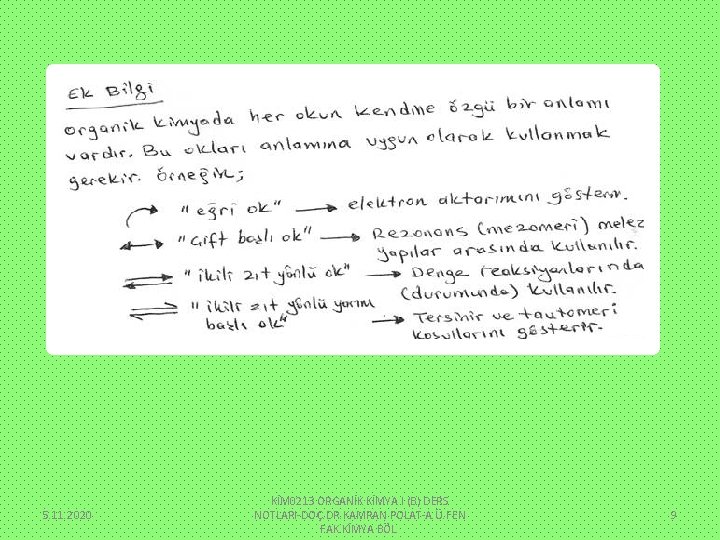 Ek Bilgi
organik kimyada her okun kendine özgü bir anlamı
vardır. Bu okları anlamına uygun olarak kullanmak
gerekir. örneğin;
"eğri ok" → elektron aktarımını gösterir.
↔ "çift başlı ok" → Rezonans (mezomeri) melez
yapılar arasında kullanılır.
"ikili zıt yönlü ok" → Denge reaksiyonlarında
(durumunda) kullanılır.
⇌ "ikili zıt yönlü yarım
başlı ok" → Tersinir ve tautomeri
koşullarını gösterir.
5.11.2020
KİM0213 ORGANİK KİMYA I (B) DERS
NOTLARI-DOÇ.DR.KAMRAN POLAT-A.Ü.FEN
FAK.KİMYA BÖL
9